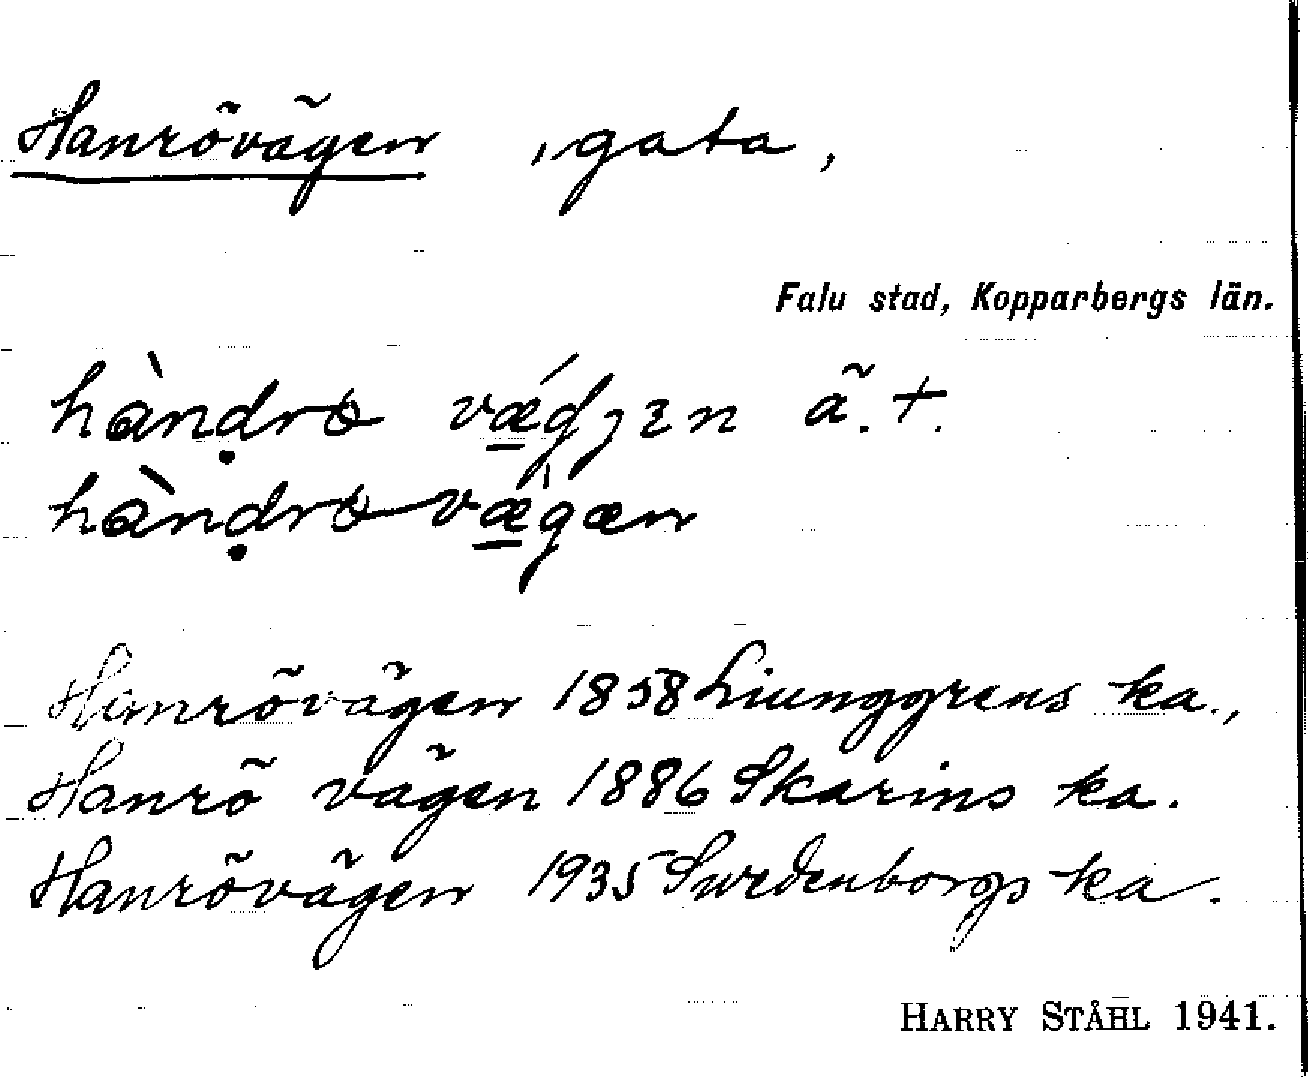 Hanrövägen, gata,
Falu stad, Kopparbergs län.
hàṇdrɵ vǽgjɛn ä. t.
hàṇdrɵvæ̀gæn
Hanrövägen 1858 Liunggrens ka.,
Hanrö vägen 1886 Skarins ka.
Hanrövägen 1935 Swedenborgs ka.
HARRY STÅHL 1941.